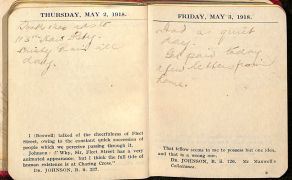 THURSDAY, MAY 2, 1918.
day.
I (Boswell) talked of the cheerfulness of Fleet
Street, owing to the constant quick succession of
people which we perceive passing through it.
Johnson: "Why, Sir, Fleet Street has a very
animated appearance, but I think the full tide of
human existence is at Charing Cross."
DR. JOHNSON, B. S. 337.
FRIDAY, MAY 3, 1918.
Had a quiet
day.
Got paid today
a few letters from
home.
That fellow seems to me to possess but one idea,
and that is a wrong one.
DR. JOHNSON, B. S. 126. Mr Maxwell's
Collectanea.